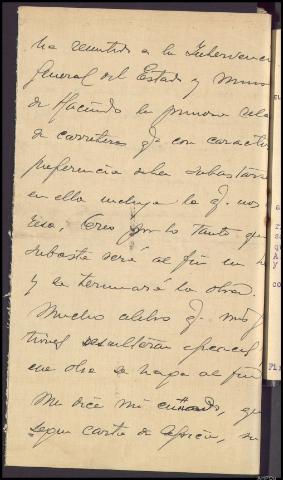 ha remitido a la Intervenció
General del Estado y Minis
de Hacienda la primera rela
de carreteras q. con caracter
preferencia deben subastarse
en ella incluye la q. nos
Creo por lo tanto que
subasta será al fin un h
y se terminará la obra.
Mucho celebro q. mis
resultaran
esa obra se haga al fin
Me dice mi cuñado, que
segun carta de su